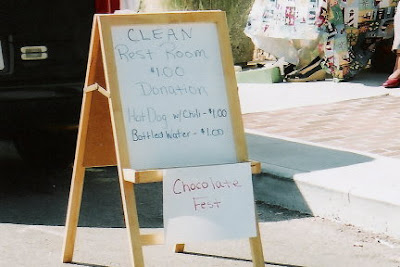 CLEAN
Rest Room
$1.00
Donation
Hot Dog w/Chili-$1.00
Bottled Water-$1.00
Chocolate
Fest